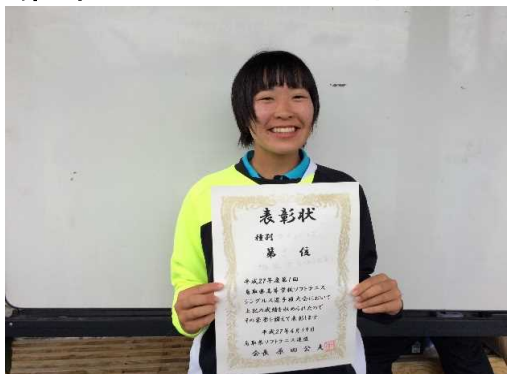 表彰状
種別
第 位
平成27年度第1回
鳥取県高等学校ソフトテニス
シングルス選手権大会において
上記の成績を収められたので
その栄誉を讃えて表彰します
平成27年4月19日
鳥取県ソフトテニス連盟
会長